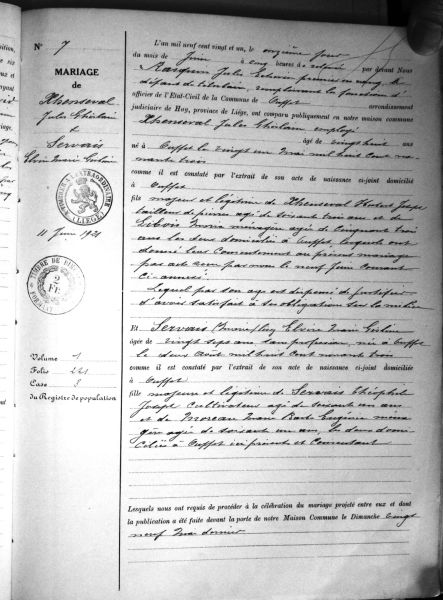 N° 7
MARIAGE
de
Xhenseval
Jules Ghislain
&
Servais
Elvire Marie Ghislain
11 Juin 1921
TIMBRE DE DIM
2
FR
Volume 1
Folio 221
Case 8
du Registre de population
L'an mil neuf cent vingt et un, le onzième jour
du mois de Juin à cinq heures de relevée par devant Nous
Jules échevin premier en rang, à
défaut de titulaire, remplissant la fonction d'
officier de l'Etat-Civil de la Commune de Ouffet arrondissement
judiciaire de Huy, province de Liége, ont comparu publiquement en notre maison commune
Xhenseval Jules Ghislain employé
âgé de vingt huit ans
né à Ouffet le vingt un Mai mil huit cent no-
nante trois
comme il est constaté par l'extrait de son acte de naissance ci-joint domicilié
à Ouffet
fils majeur et légitime de Xhenseval Hubert Joseph
tailleur de pierres âgé de soixante trois ans et de
Maria ménagère âgée de cinquante trois
ans les deux domiciliés à Ouffet, lesquels ont
donné leur consentement au présent mariage
par acte reçu par nous le neuf Juin courant
ci-annexé.
Lequel par son âge est dispensé de justifier
d'avoir satisfait à ses obligations sur la milice
Et Servais Elvire Marie Ghislain
âgée de vingt sept ans sans profession, née à Ouffet
le deux Août mil huit cent nonante trois
comme il est constaté par l'extrait de son acte de naissance ci-joint domiciliée
à Ouffet
fille majeure et légitime de Servais Théophile
Joseph cultivateur âgé de soixante un ans
et de Moreau Marie Barbe Eugénie ména-
gère âgée de soixante un ans, les deux domi-
ciliés à Ouffet ici présents et consentant
Lesquels nous ont requis de procéder à la célébration du mariage projeté entre eux et dont
la publication a été faite devant la porte de notre Maison Commune le Dimanche vingt
neuf Mai dernier